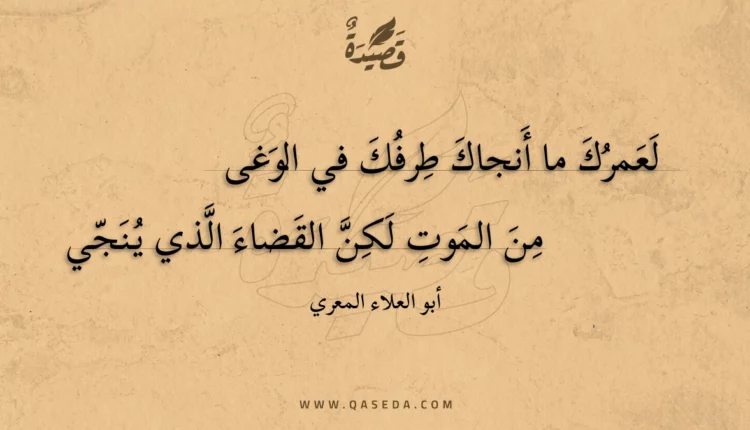 قَصِيدَةٌ
لَعَمرُكَ ما أَنجاكَ طِرفُكَ في الوَغى
مِنَ المَوتِ لَكِنَّ القَضاءَ الَّذي يُنَجّي
أبو العلاء المعري
WWW.QASEDA.COM